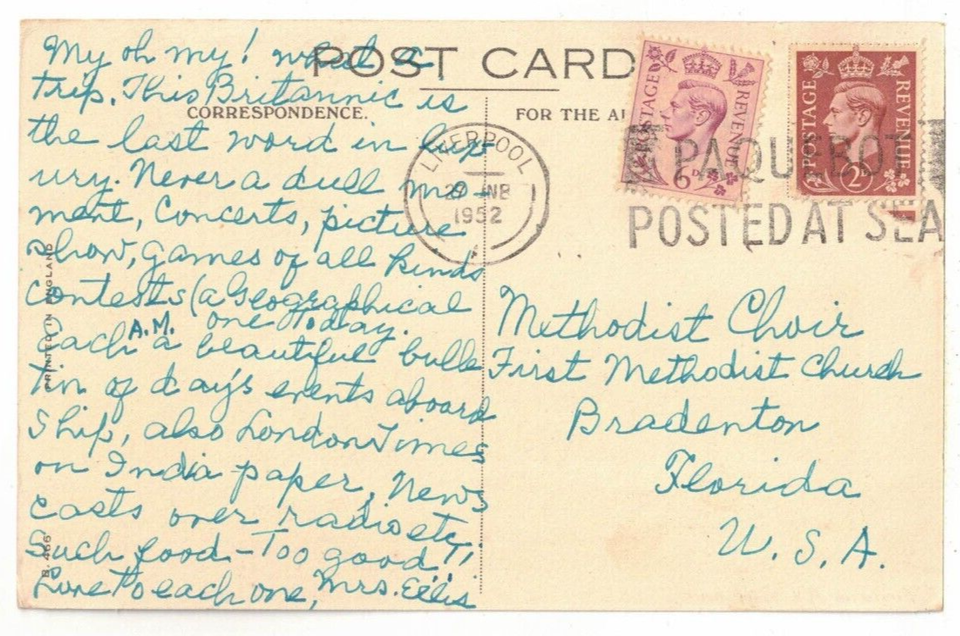 POST CARD
CORRESPONDENCE.
FOR THE
My oh my! what a
trip. This Britannic is
the last word in lux-
ury. Never a dull mo-
ment, Concerts, picture
show, games of all kinds
contests (a Geographical
one today.
Each A.M. a beautiful bulle
tin of day's events aboard
Ship, also London Times
on India paper, News
casts over radio etc.
Such food - Too good!
Love to each one, Mrs. Ellis
PRINTED IN ENGLAND
B. 466
LIVERPOOL
1952
POSTAGE REVENUE
6D
POSTAGE REVENUE
2D
PAQUEBOT
POSTED AT SEA
Methodist Choir
First Methodist Church
Bradenton
Florida
U. S. A.